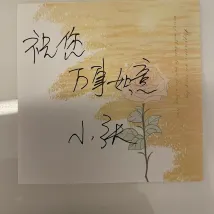 祝您
万事如意
小张